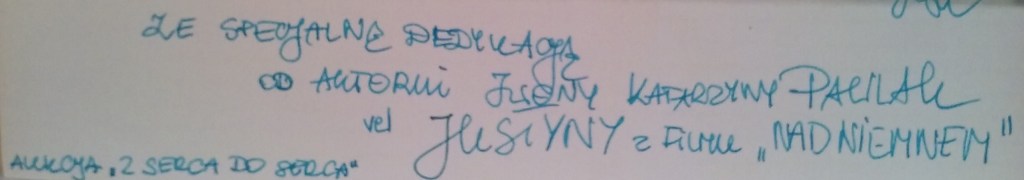 ZE SPECJALNĄ DEDYKACJĄ
OD AUTORKI IWONY KATARZYNY PAWLAK
vel JUSTYNY z FILMU „NAD NIEMNEM"
AUKCJA „Z SERCA DO SERCA"